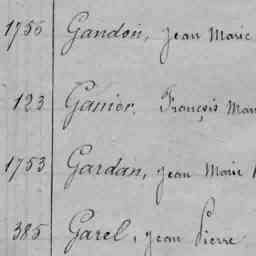 1755 Gandon, Jean Marie
123 Ganier, François Mar
1753 Gardan, Jean Marie
385 Garel, Jean Pierre